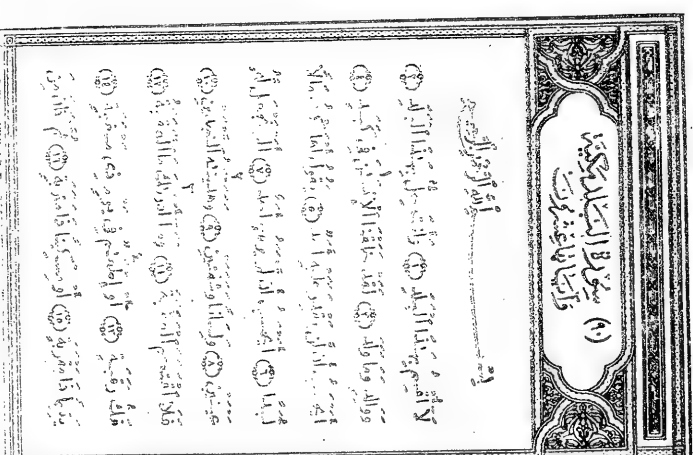 (٩٠) سُورَةُ البَلَدِ مَكِّيَّة
وَآيَاتُهَا عِشْرُونَ
بِسْمِ اللَّهِ الرَّحْمَٰنِ الرَّحِيمِ
لَا أُقْسِمُ بِهَٰذَا الْبَلَدِ (١) وَأَنتَ حِلٌّ بِهَٰذَا الْبَلَدِ (٢)
وَوَالِدٍ وَمَا وَلَدَ (٣) لَقَدْ خَلَقْنَا الْإِنسَانَ فِي كَبَدٍ (٤)
أَيَحْسَبُ أَن لَّن يَقْدِرَ عَلَيْهِ أَحَدٌ (٥) يَقُولُ أَهْلَكْتُ مَالًا
لُّبَدًا (٦) أَيَحْسَبُ أَن لَّمْ يَرَهُ أَحَدٌ (٧) أَلَمْ نَجْعَل لَّهُ
عَيْنَيْنِ (٨) وَلِسَانًا وَشَفَتَيْنِ (٩) وَهَدَيْنَاهُ النَّجْدَيْنِ (١٠)
فَلَا اقْتَحَمَ الْعَقَبَةَ (١١) وَمَا أَدْرَاكَ مَا الْعَقَبَةُ (١٢)
فَكُّ رَقَبَةٍ (١٣) أَوْ إِطْعَامٌ فِي يَوْمٍ ذِي مَسْغَبَةٍ (١٤)
يَتِيمًا ذَا مَقْرَبَةٍ (١٥) أَوْ مِسْكِينًا ذَا مَتْرَبَةٍ (١٦) ثُمَّ كَانَ مِنَ